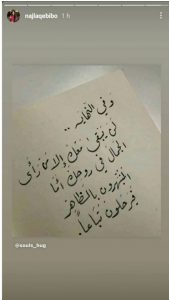 najlaqebibo 1 h
وفي النهاية ..
لن يبقى معك إلا من رأى
الجمال في روحك أما
المنبهرون بالمظاهر
فيرحلون تباعاً.
@souls_hug